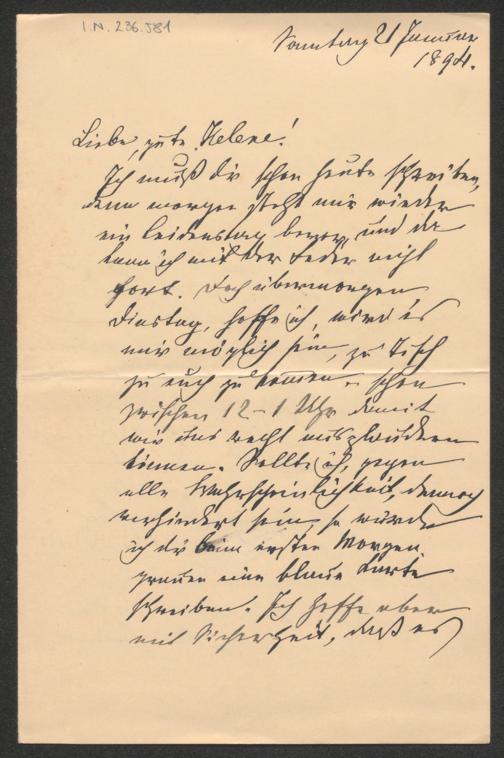 I.N. 236.581
Sonntag 21 Januar
1894.
Liebe, gute Helene!
Ich muß dir schon heute schreiben,
denn morgen steht mir wieder
ein Leidenstag bevor, und da
kann ich mit der Feder nicht
fort. Doch übermorgen
Dinstag, hoffe ich, wird es
mir möglich sein, zu Tisch
zu euch zu kommen schon
zwischen 12-1 Uhr damit
wir uns recht ausplaudern
können. Sollte ich, gegen
alle Wahrscheinlichkeit, dennoch
verhindert sein, so würde
ich dir beim ersten Morgen
grauen eine blaue Karte
schreiben. Ich hoffe aber
mit Sicherheit, daß es